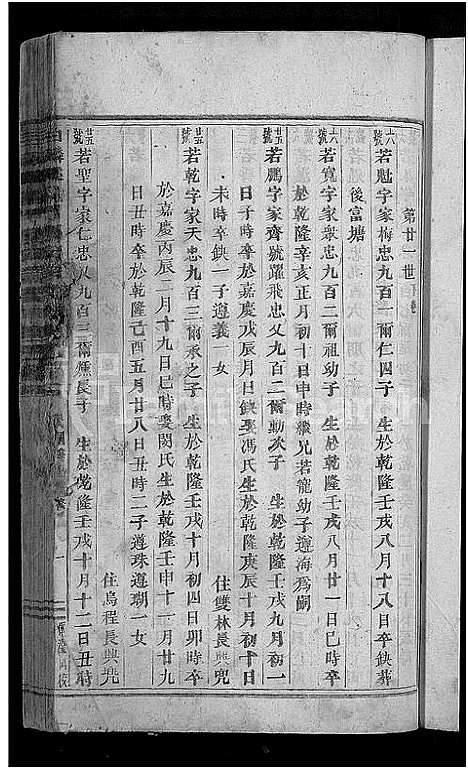 第廿一世
十六號 若魁字家梅忠九百一爾仁四子 生於乾隆壬戌八月十八日卒缺葬
後富塘
十六號 若寬字家衆忠九百二爾祖幼子 生於乾隆壬戌八月廿一日巳時卒
於乾隆辛亥正月初十日申時繼兄若龍幼子遵海爲嗣
廿五號 若鵬字家齊號躍飛忠父九百二爾勳次子 生於乾隆壬戌九月初一
日子時卒於嘉慶戊辰月日缺娶馮氏生於乾隆庚辰十月初十日
未時卒缺一子遵義一女 住雙林長興兜
廿五號 若乾字家天忠九百三爾承之子 生於乾隆壬戌十月初四日卯時卒
於嘉慶丙辰二月十九日巳時娶閔氏生於乾隆壬申十一月廿九
日丑時卒於乾隆己酉五月廿八日丑時二子遵珠遵瑚一女
住烏程長興兜
廿五號 若聖字家仁忠乂九百三爾燕長子 生於乾隆壬戌十月十二日丑時